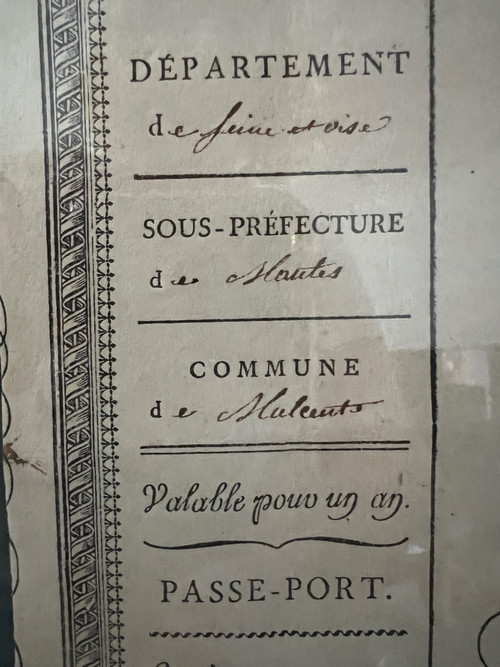 DÉPARTEMENT
de Seine et oise
SOUS-PRÉFECTURE
de Mantes
COMMUNE
de Mulcents
Valable pour un an.
PASSE-PORT.